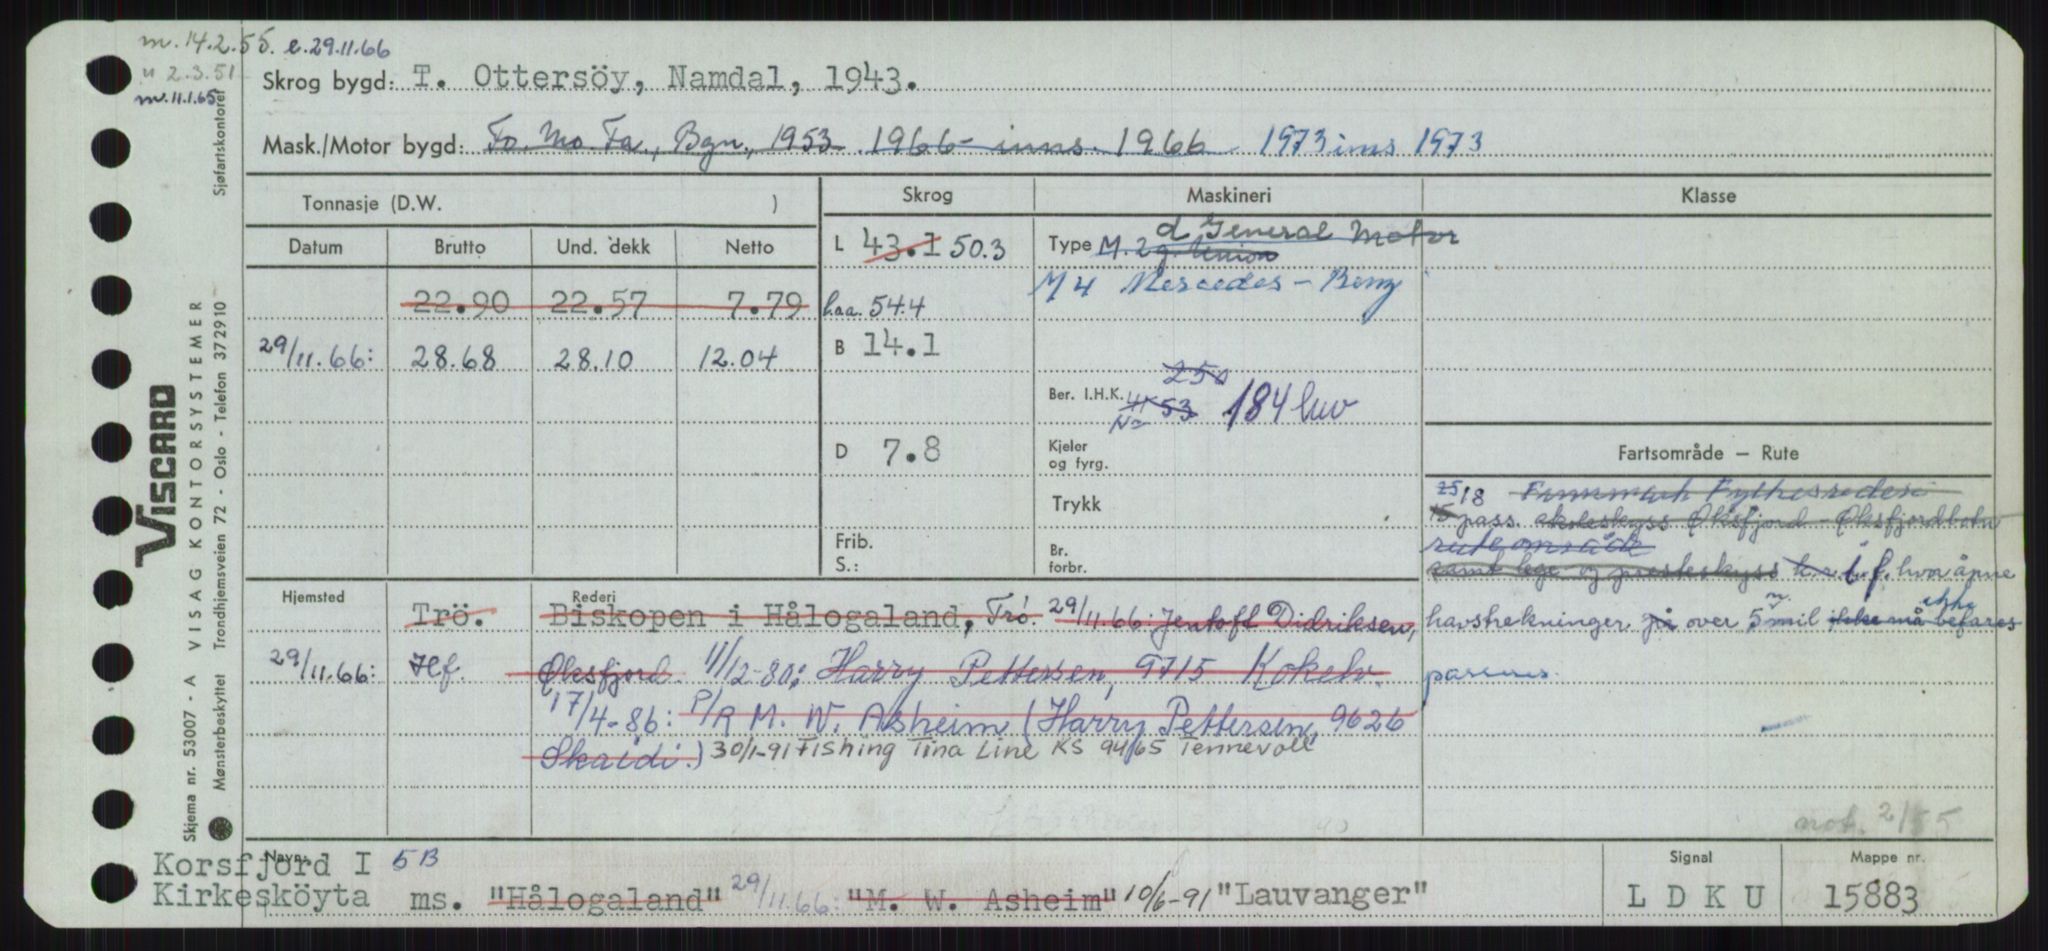 m. 14.2.55. e. 29.11.66
" 2.3.51
m. 11.1.65
Sjøfartskontoret
Skrog bygd: T. Ottersöy, Namdal, 1943.
Mask./Motor bygd: Fo. Mo. Fa., Bgn., 1953 1966 - inns. 1966 1973 ins 1973
Tonnasje (D.W. ) Skrog Maskineri Klasse
Datum Brutto Und. dekk Netto
L 43.1 50.3
Type M. 2 g. Union d General Motor
M 4 Mercedes - Benz
22.90 22.57 7.79
l.aa. 54.4
29/11.66: 28.68 28.10 12.04
B 14.1
Ber. I.H.K. 250 184 hw
41-53
D 7.8
Kjeler og fyrg.
Fartsområde — Rute
Trykk
25 18 Finnmark Fylkesrederi
15 pass. skoleskyss Øksfjord - Øksfjordbotn
ruteområde
Frib.
S.:
Br. forbr.
samt lege og presteskyss i.f. hvor åpne
havstrekninger på over 5 n. mil ikke må befares ikke
Hjemsted Rederi
Trö. Biskopen i Hålogaland, Trö. 29/11.66: Jentoft Didriksen,
29/11.66: Hf. Øksfjord. 11/12-80: Harry Pettersen, 9715 Kokelv.
17/4-86: P/R M. W. Asheim (Harry Pettersen, 9626
Skaidi.) 30/1-91 Fishing Tina Line KS 9465 Tennevoll
Navn:
Korsfjord I 5B
Kirkesköyta ms. "Hålogaland" 29/11.66: "M. W. Asheim" 10/6-91 "Lauvanger"
Signal
L D K U
Mappe nr.
15883
VISCARD
Skjema nr. 53007 - A VISAG KONTORSYSTEMER
Mønsterbeskyttet Trondhjemsveien 72 - Oslo - Telefon 372910